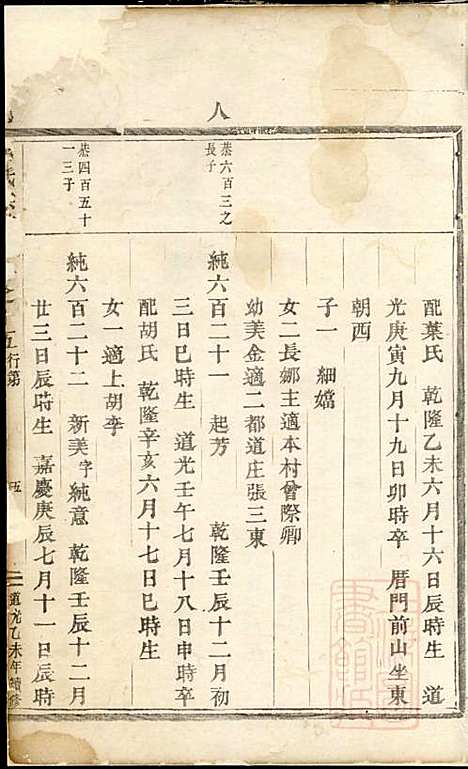 八
配葉氏　乾隆乙未六月十六日辰時生　道
光庚寅九月十九日卯時卒　厝門前山坐東
朝西
子一　細嬌
女二長娜主適本村曾際卿
幼美金適二都道庄張三東
恭六百三之
長子
純六百二十一　起芳　乾隆壬辰十二月初
三日巳時生　道光壬午七月十八日申時卒
配胡氏　乾隆辛亥六月十七日巳時生
女一適上胡李
恭四百五十
一三子
純六百二十二　新美字純意　乾隆壬辰十二月
廿三日辰時生　嘉慶庚辰七月十一日辰時
行第　五　道光乙未年續修